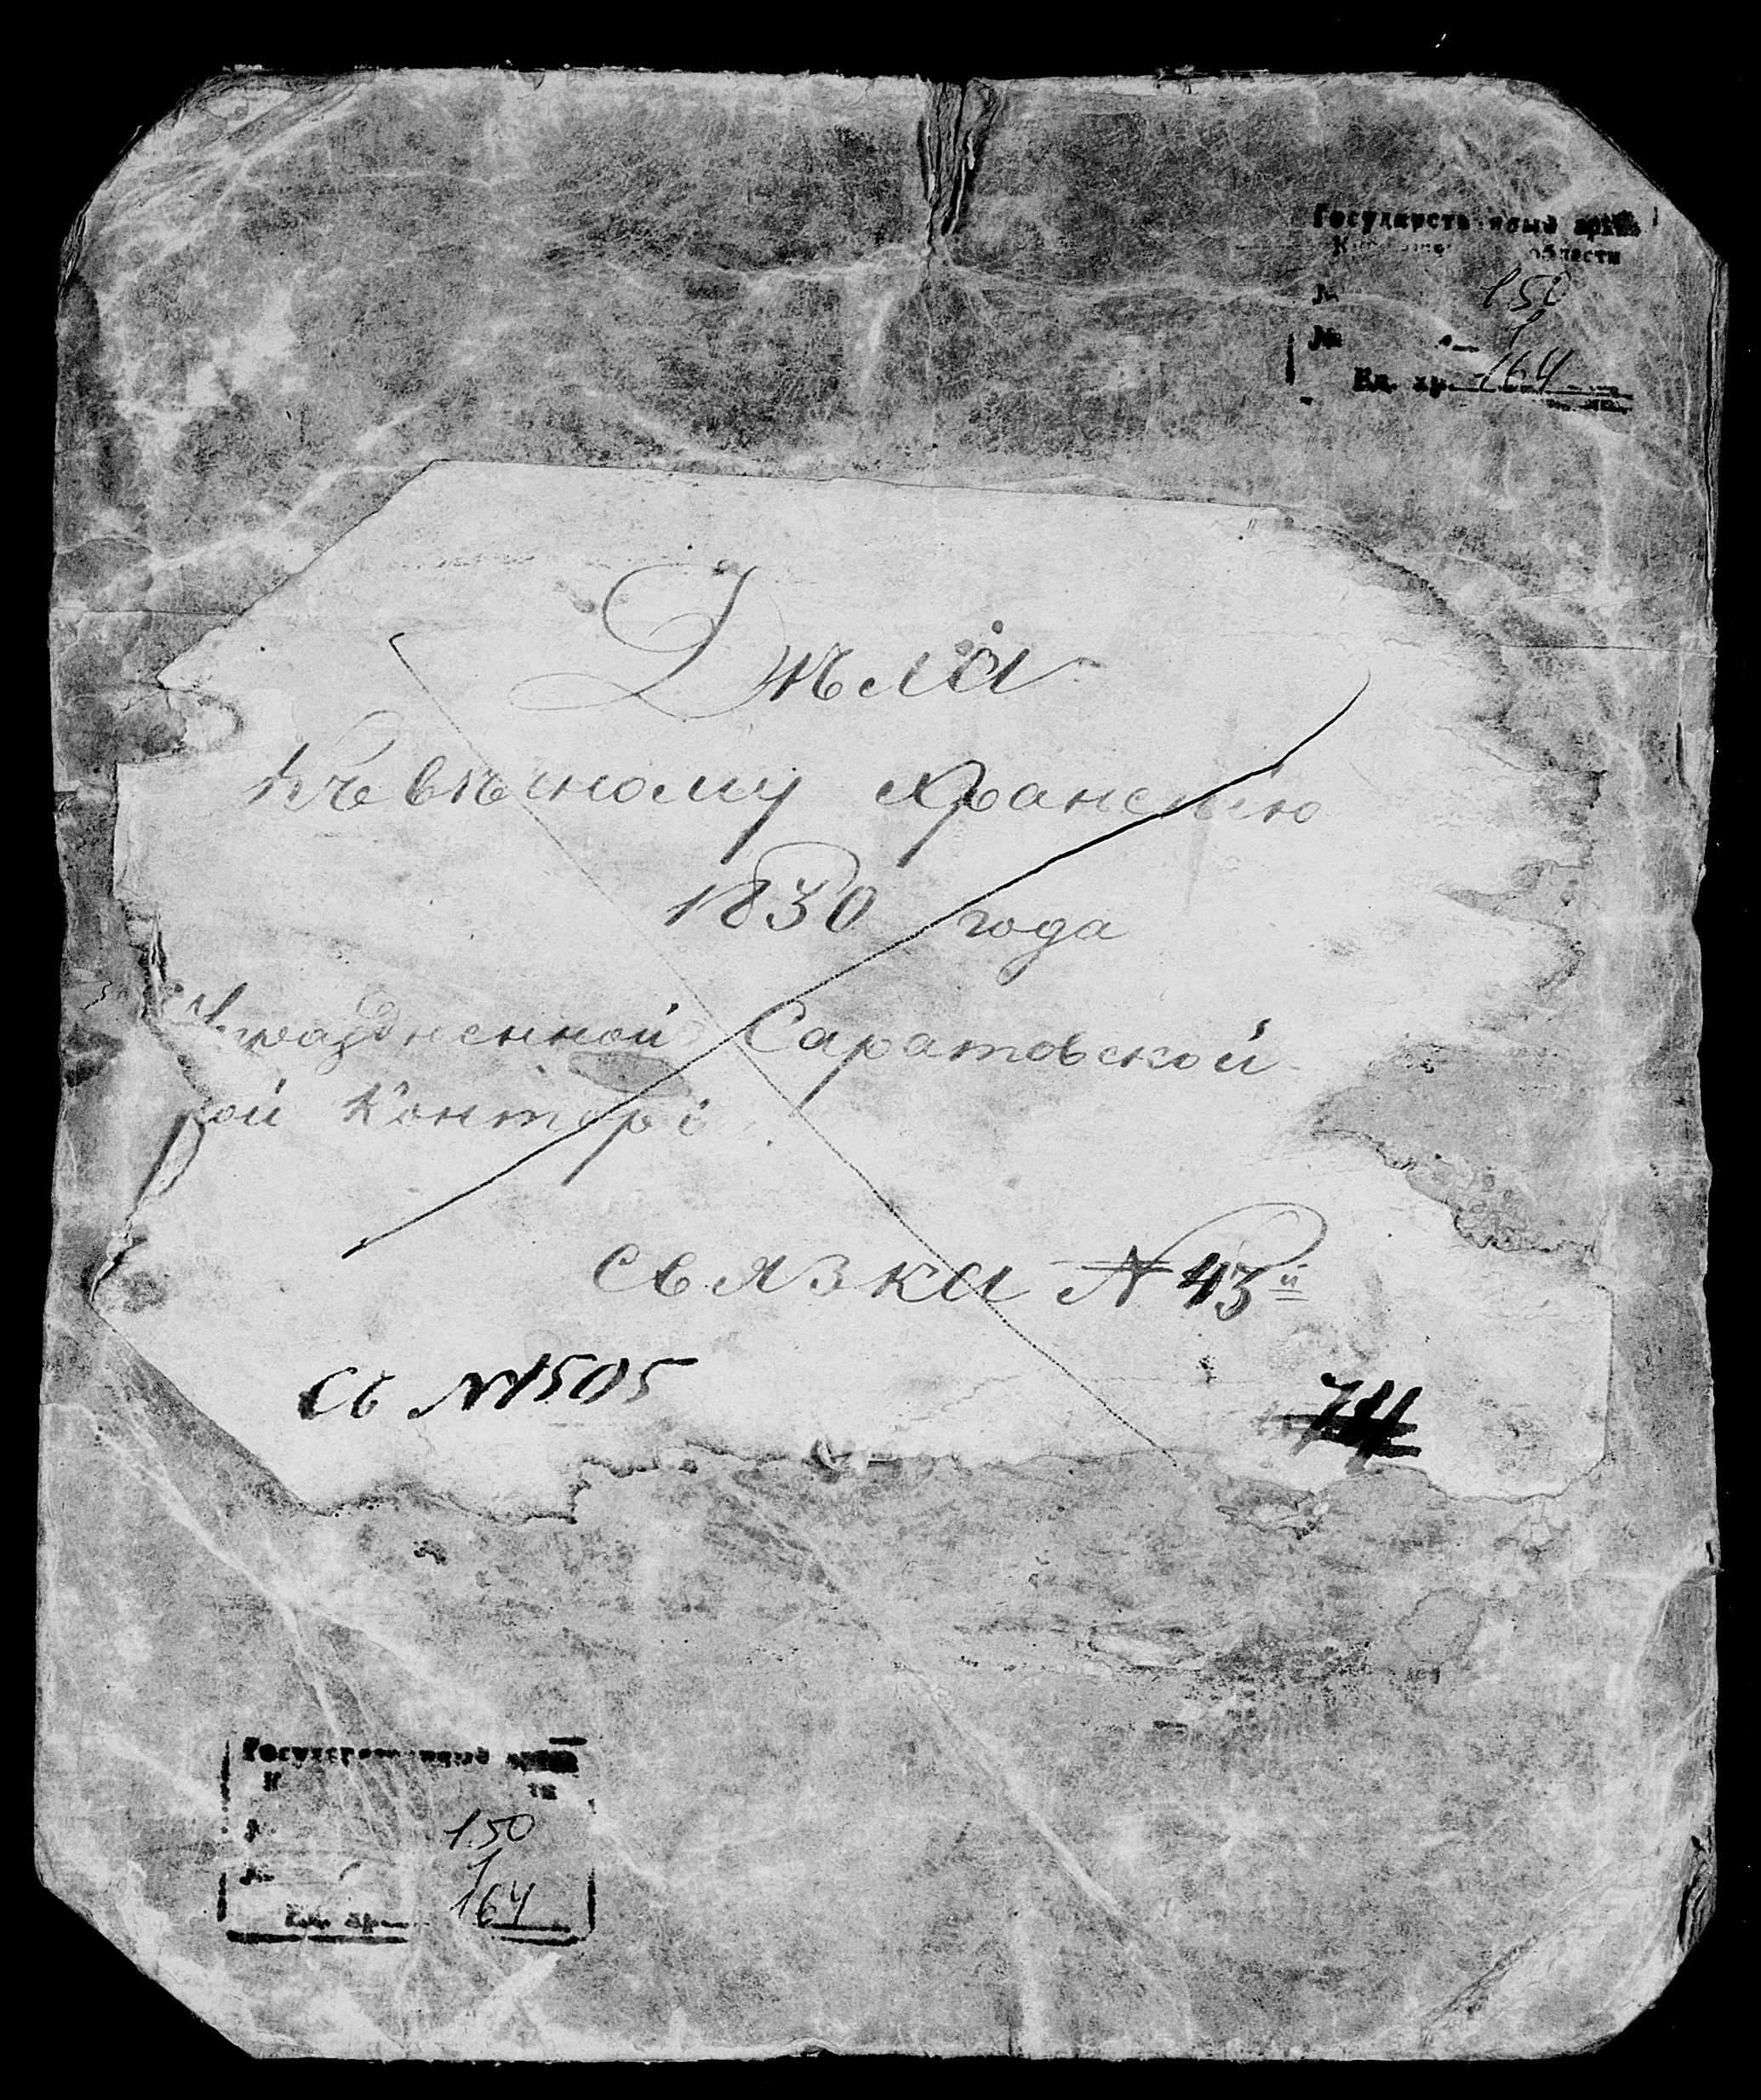 Государственный архив
области
150
1
Ед. хр. 164
Дѣла
Къ вѣчному храненію
1830 года
Упраздненной Саратовской
ой Конторы
Связка № 43й
Съ № 1505
Государственный архив
150
1
Ед. хр. 164